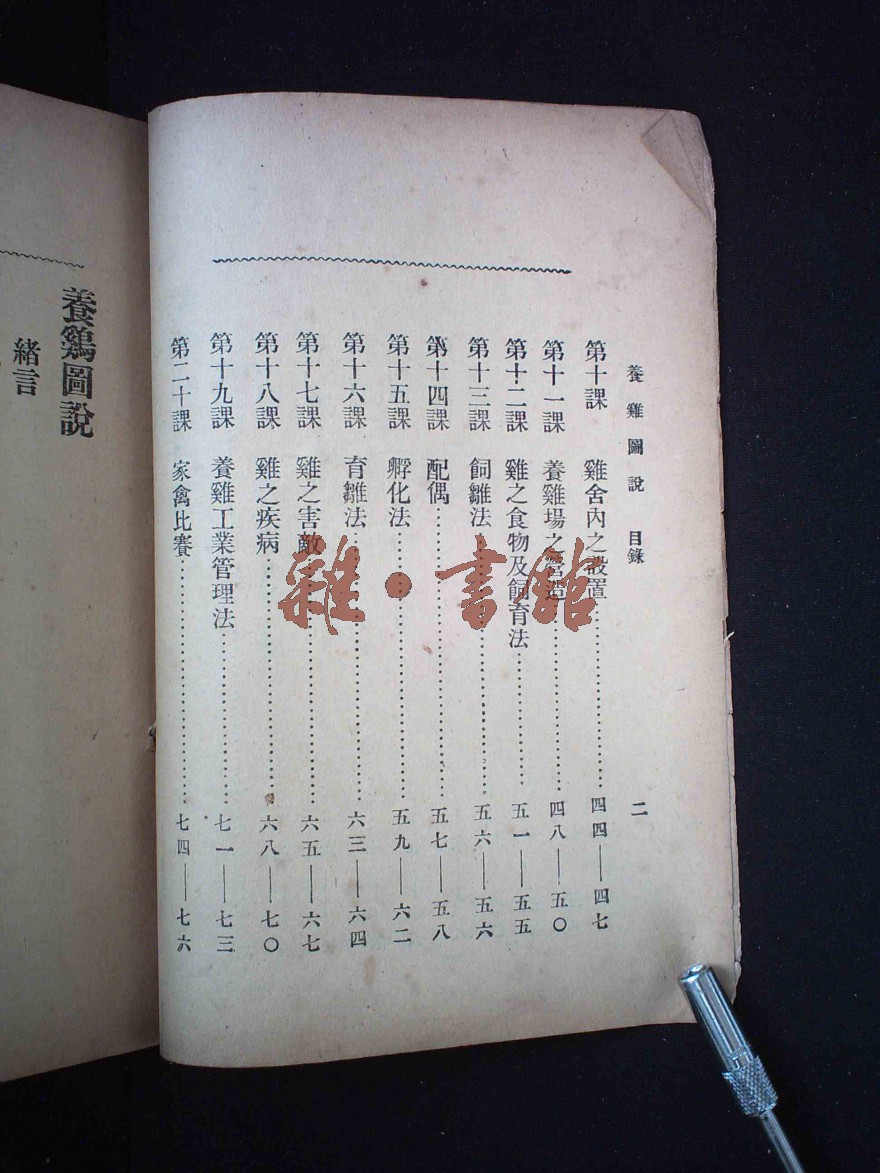 養雞圖說 目錄 二
第十課 雞舍內之設置 四四——四七
第十一課 養雞場之營造 四八——五〇
第十二課 雞之食物及飼育法 五一——五五
第十三課 飼雛法 五六——五六
第十四課 配偶 五七——五八
第十五課 孵化法 五九——六二
第十六課 育雛法 六三——六四
第十七課 雞之害敵 六五——六七
第十八課 雞之疾病 六八——七〇
第十九課 養雞工業管理法 七一——七三
第二十課 家禽比賽 七四——七六
養鷄圖說
緒言
雜·書館